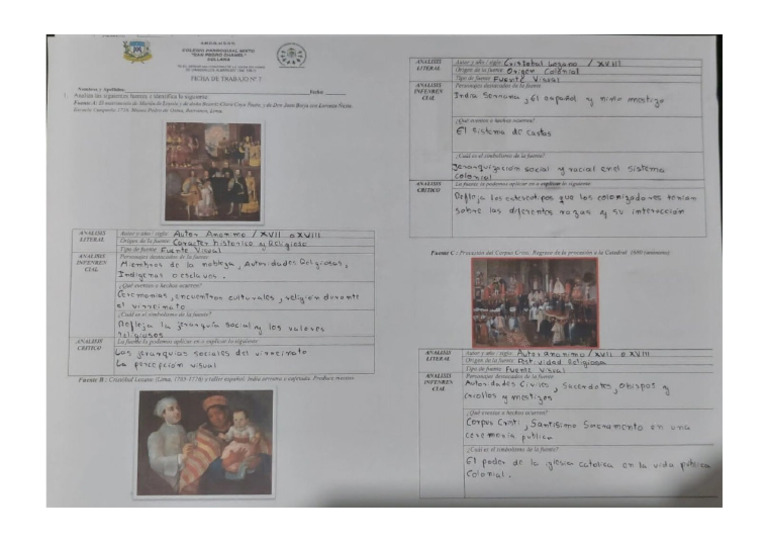 COLEGIO PARROQUIAL MIXTO
"SAN PEDRO CHANEL"
SULLANA
FICHA DE TRABAJO N° 7
Nombres y Apellidos:
Fecha:
Analiza las siguientes fuentes, e identifica lo siguiente:
Fuente A: El matrimonio de Martín de Loyola y de doña Beatriz Clara Coya Ñusta, y de Don Juan Borja con Lorenza Ñusta.
Escuela Cusqueña 1718. Museo Pedro de Osma, Barranco, Lima.
ANALISIS LITERAL
Autor y año / siglo: Autor Anonimo / XVII o XVIII
Origen de la fuente: Caracter historico y Religioso
Tipo de fuente: Fuente Visual
ANALISIS INFENRENCIAL
Personajes destacados de la fuente:
Miembros de la nobleza, Autoridades Religiosas,
Indigenas o esclavos.
¿Qué eventos o hechos ocurren?
Ceremonias, encuentros culturales, religion durante
el virreinato
¿Cuál es el simbolismo de la fuente?
Refleja la jerarquia social y los valores
religiosos
ANALISIS CRITICO
La fuente la podemos aplicar en o explicar lo siguiente
Las jerarquias sociales del virreinato
La percepción visual
Fuente B : Cristóbal Lozano (Lima, 1705-1776) o taller español. India serrana o cafetada. Produce mestizo.
ANALISIS LITERAL
Autor y año / siglo: Cristobal Lozano / XVIII
Origen de la fuente: Origen Colonial
Tipo de fuente: Fuente Visual
ANALISIS INFENRENCIAL
Personajes destacados de la fuente:
India Serrana, El español y niño mestizo
¿Qué eventos o hechos ocurren?
El sistema de castas
¿Cuál es el simbolismo de la fuente?
Jerarquización social y racial en el sistema
Colonial
ANALISIS CRITICO
La fuente la podemos aplicar en o explicar lo siguiente
Refleja los estereotipos que los colonizadores tenian
sobre las diferentes razas y su interacción
Fuente C : Procesión del Corpus Cristi. Regreso de la procesión a la Catedral. 1680 (anónimo)
ANALISIS LITERAL
Autor y año / siglo: Autor anonimo / XVII o XVIII
Origen de la fuente: Actividad Religiosa
Tipo de fuente: Fuente Visual
ANALISIS INFENRENCIAL
Personajes destacados de la fuente:
Autoridades Civiles, Sacerdotes, obispos y
criollos y mestizos
¿Qué eventos o hechos ocurren?
Corpus Cristi, Santisimo Sacramento en una
ceremonia publica
¿Cuál es el simbolismo de la fuente?
El poder de la iglesia catolica en la vida publica
Colonial.